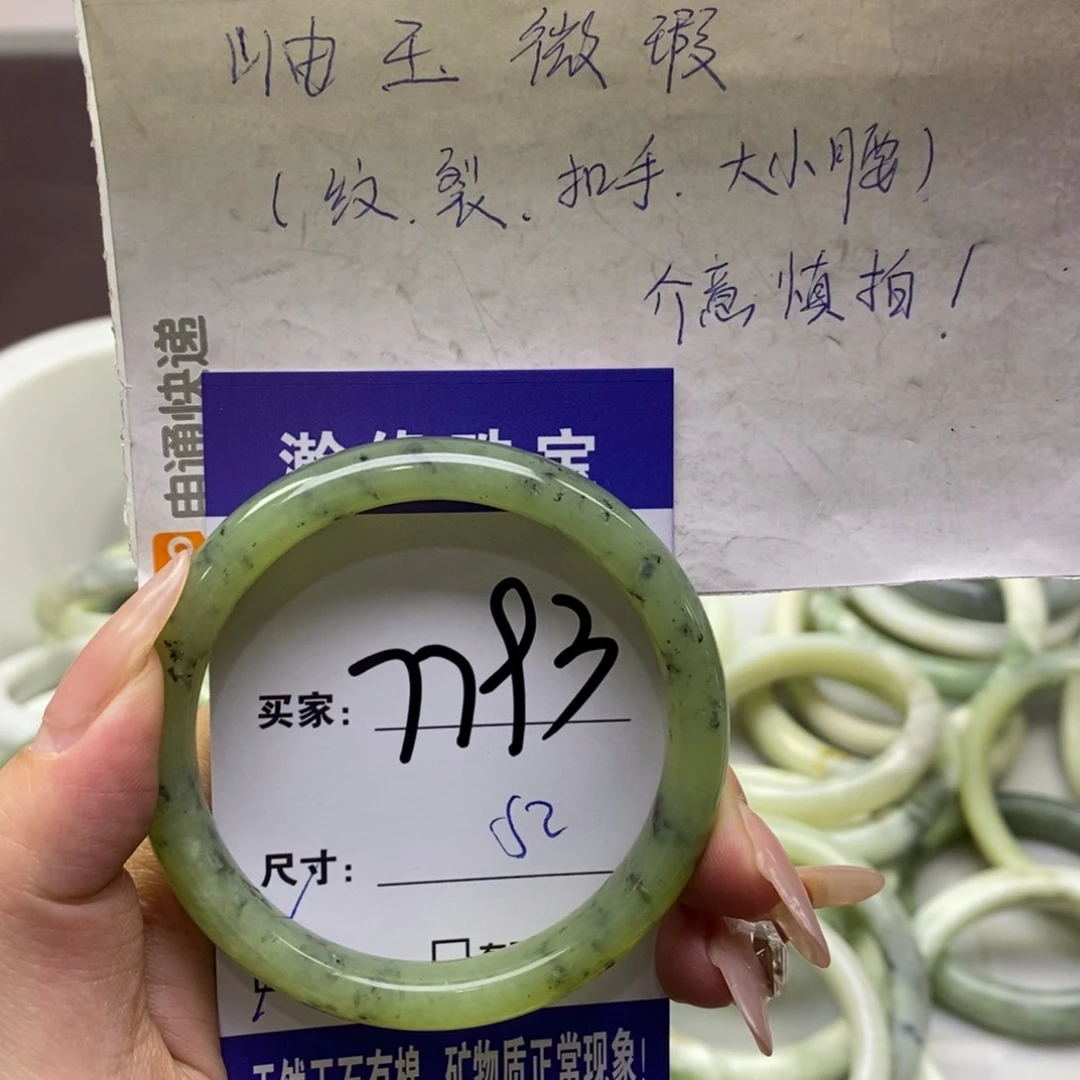 岫玉微瑕
(纹.裂.扣手.大小腰)
介意慎拍!
申通快递
珠宝
买家:
尺寸: 52
天然玉石有棉 矿物质正常现象!